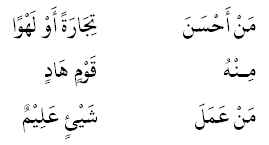 مَنْ أَحْسَنَ تِجَارَةً أَوْ لَهْوًا
مِـنْهُ قَوْمٍ هَادٍ
مَنْ عَمَلَ شَيْئٍ عَلِيْمٌ